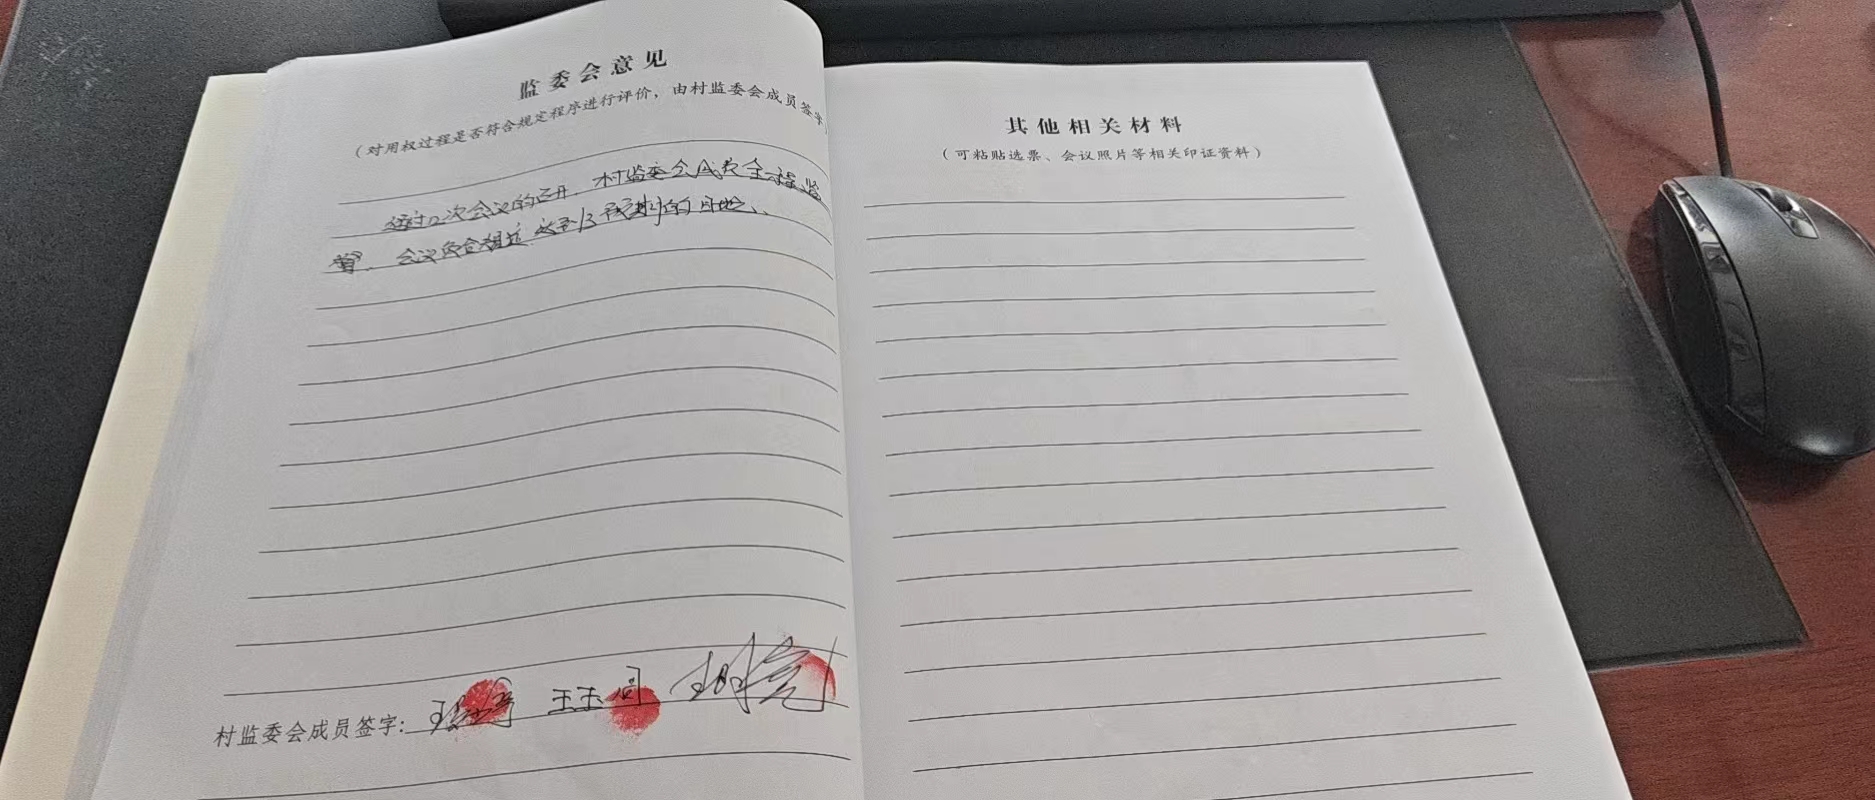 监委会意见
（对用权过程是否符合规定程序进行评价，由村监委会成员签字）
通过2次会议的召开，村监委会成员全程监
督，会议符合规定，达到了预期的目的。
村监委会成员签字：
其他相关材料
（可粘贴选票、会议照片等相关印证资料）